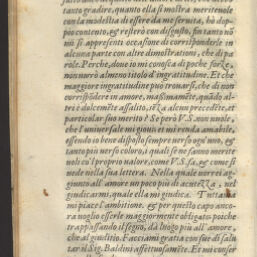 tanto gradire, quanto ella si mostra meritevole
con la modestia di essere da me servita, hò dop-
pio contento, & resterò con disgusto, fin tanto nò
mi si appresenti occasione di corrisponderle in
alcuna parte con altre dimostrationi, che di pa-
role. Perche, dove io mi conosca di poche forze,
non vorrò almeno titolo d'ingratitudine. Et che
maggiore ingratitudine può trovarsi, che di non
corrispōdere in amore, massimamēte, quando al-
tri è dolcemēte assalito, sēza alcun precedēte, et
particolar suo merito? Se però V.S. non vuole,
che l'universale mi giovi, et mi renda amabile,
essendo io bene disposto sempre verso ogn'uno, &
tanto più verso coloro, i quali se ne fanno merite
voli cō'l proprio valore, come V.S. fa, & come si
vede nella sua lettera. Nella quale vorrei ag-
giunto all'amore un poco più di acutezza, nel
giudicarmi, quale ella mi giudica. Tuttavia
mi piace l'ambitione, & per questo capo anco-
ra voglio esserle maggiormente obligato, poiche
trapassando il segno, dà luogo più all'amore,
che al giuditio. Facciami gratia con sue di salu-
tar il Sig. Baldini affettuosamēte, Et mi conser